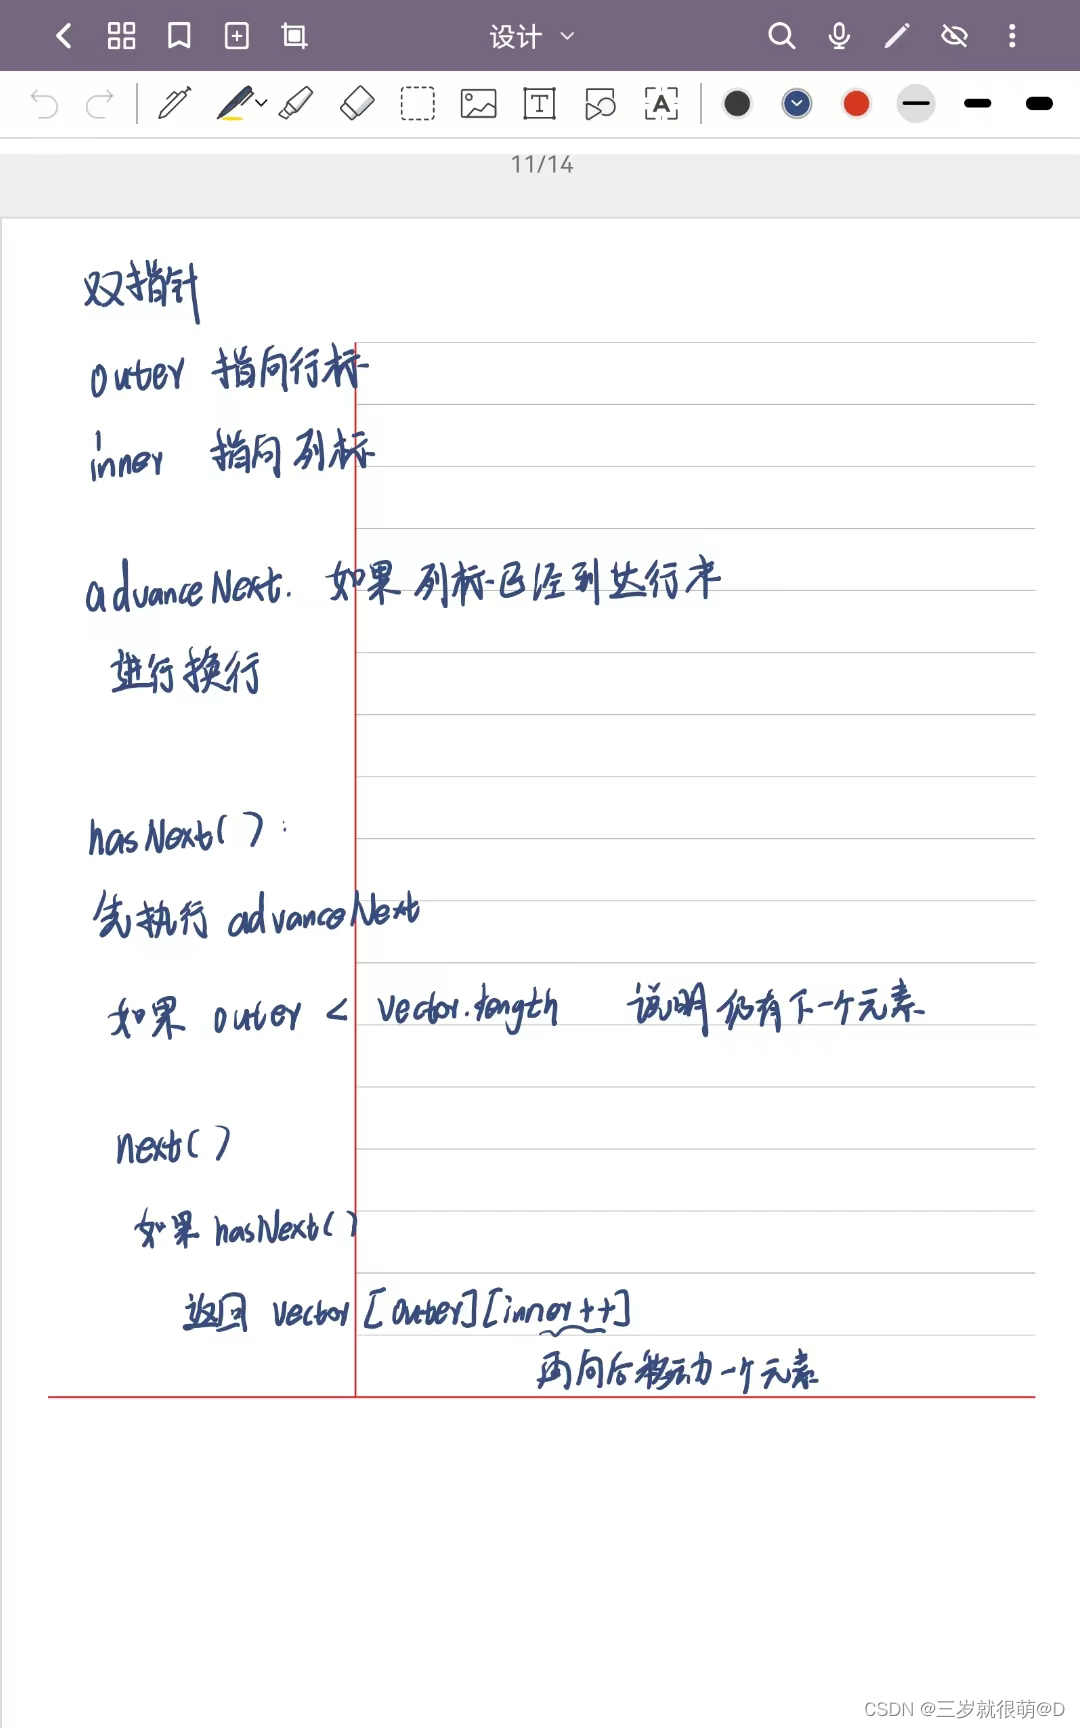 设计
11/14
双指针
outer 指向行标
inner 指向列标
advanceNext. 如果列标已经到达行末
进行换行
hasNext():
先执行 advanceNext
如果 outer < vector.length 说明仍有下一个元素
next()
如果 hasNext()
返回 vector [outer][inner++]
再向后移动一个元素
CSDN @三岁就很萌@D